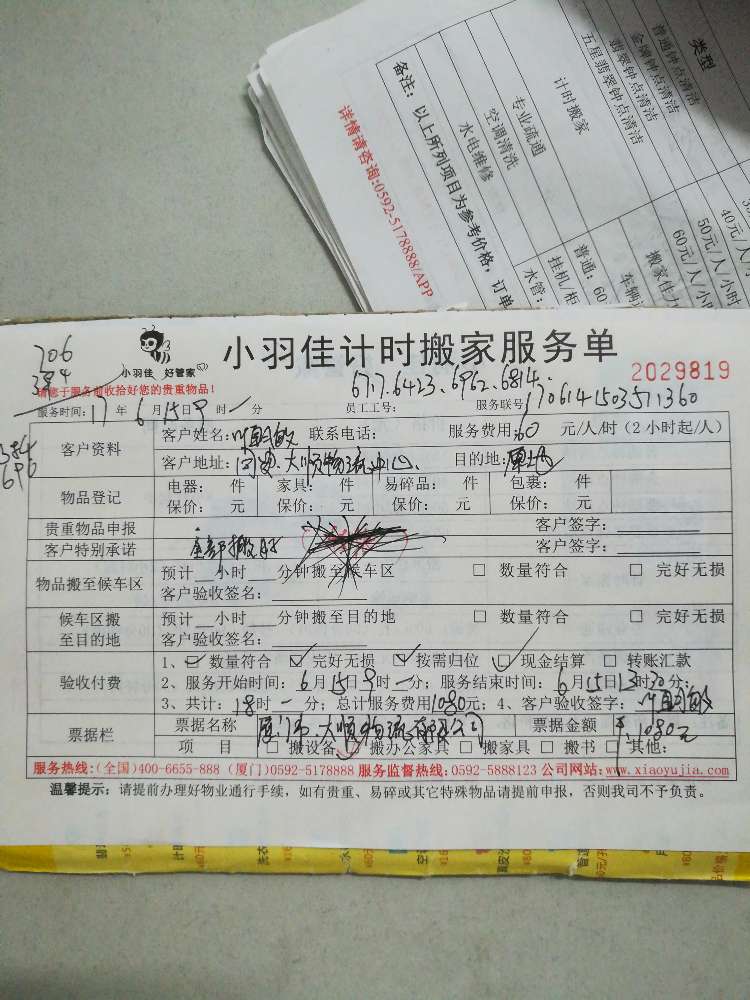 类型
普通钟点清洁
金牌钟点清洁
翡翠钟点清洁
五星翡翠钟点清洁
计时搬家
专业疏通
空调清洗
水电维修
备注：以上所列项目为参考价格，订单
详情请咨询:0592-5178888/APP
40元/人/
50元/人/小时
60元/人/小
搬家佳力
车辆运
普通：60
挂机/柜
水管：
706
384
小羽佳 好管家
小羽佳计时搬家服务单
2029819
请您于服务前收拾好您的贵重物品！
6717.6423.6962.6814.
服务时间：17年6月15日9时一分 员工工号： 服务联号1706141503571360
384
696
客户资料
客户姓名：叶 敏 联系电话： 服务费用：60 元/人/时（2小时起/人）
客户地址： 大顺物流中心 目的地：
物品登记
电器： 件 家具： 件 易碎品： 件 包裹： 件
保价： 元 保价： 元 保价： 元 保价： 元
贵重物品申报 客户签字：
客户特别承诺 全部搬好 客户签字：
物品搬至候车区
预计__小时__分钟搬至候车区 □ 数量符合 □ 完好无损
客户验收签名：
候车区搬至目的地
预计__小时__分钟搬至目的地 □ 数量符合 □ 完好无损
客户验收签名：
验收付费
1、☑ 数量符合 ☑ 完好无损 ☑ 按需归位 ☑ 现金结算 □ 转账汇款
2、服务开始时间：6月15日9时一分；服务结束时间：6月15日13时30分；
3、共计：18时一分；总计服务费用1080元；4、客户验收签字：叶 敏
票据栏
票据名称 厦门市大顺物流有限公司 票据金额 ¥1080元
项 目 □ 搬设备 ☑ 搬办公家具 □ 搬家具 □ 搬书 □ 其他：
服务热线:(全国)400-6655-888 (厦门)0592-5178888 服务监督热线:0592-5888123 公司网站:www.xiaoyujia.com
温馨提示：请提前办理好物业通行手续，如有贵重、易碎或其它特殊物品请提前申报，否则我司不予负责。